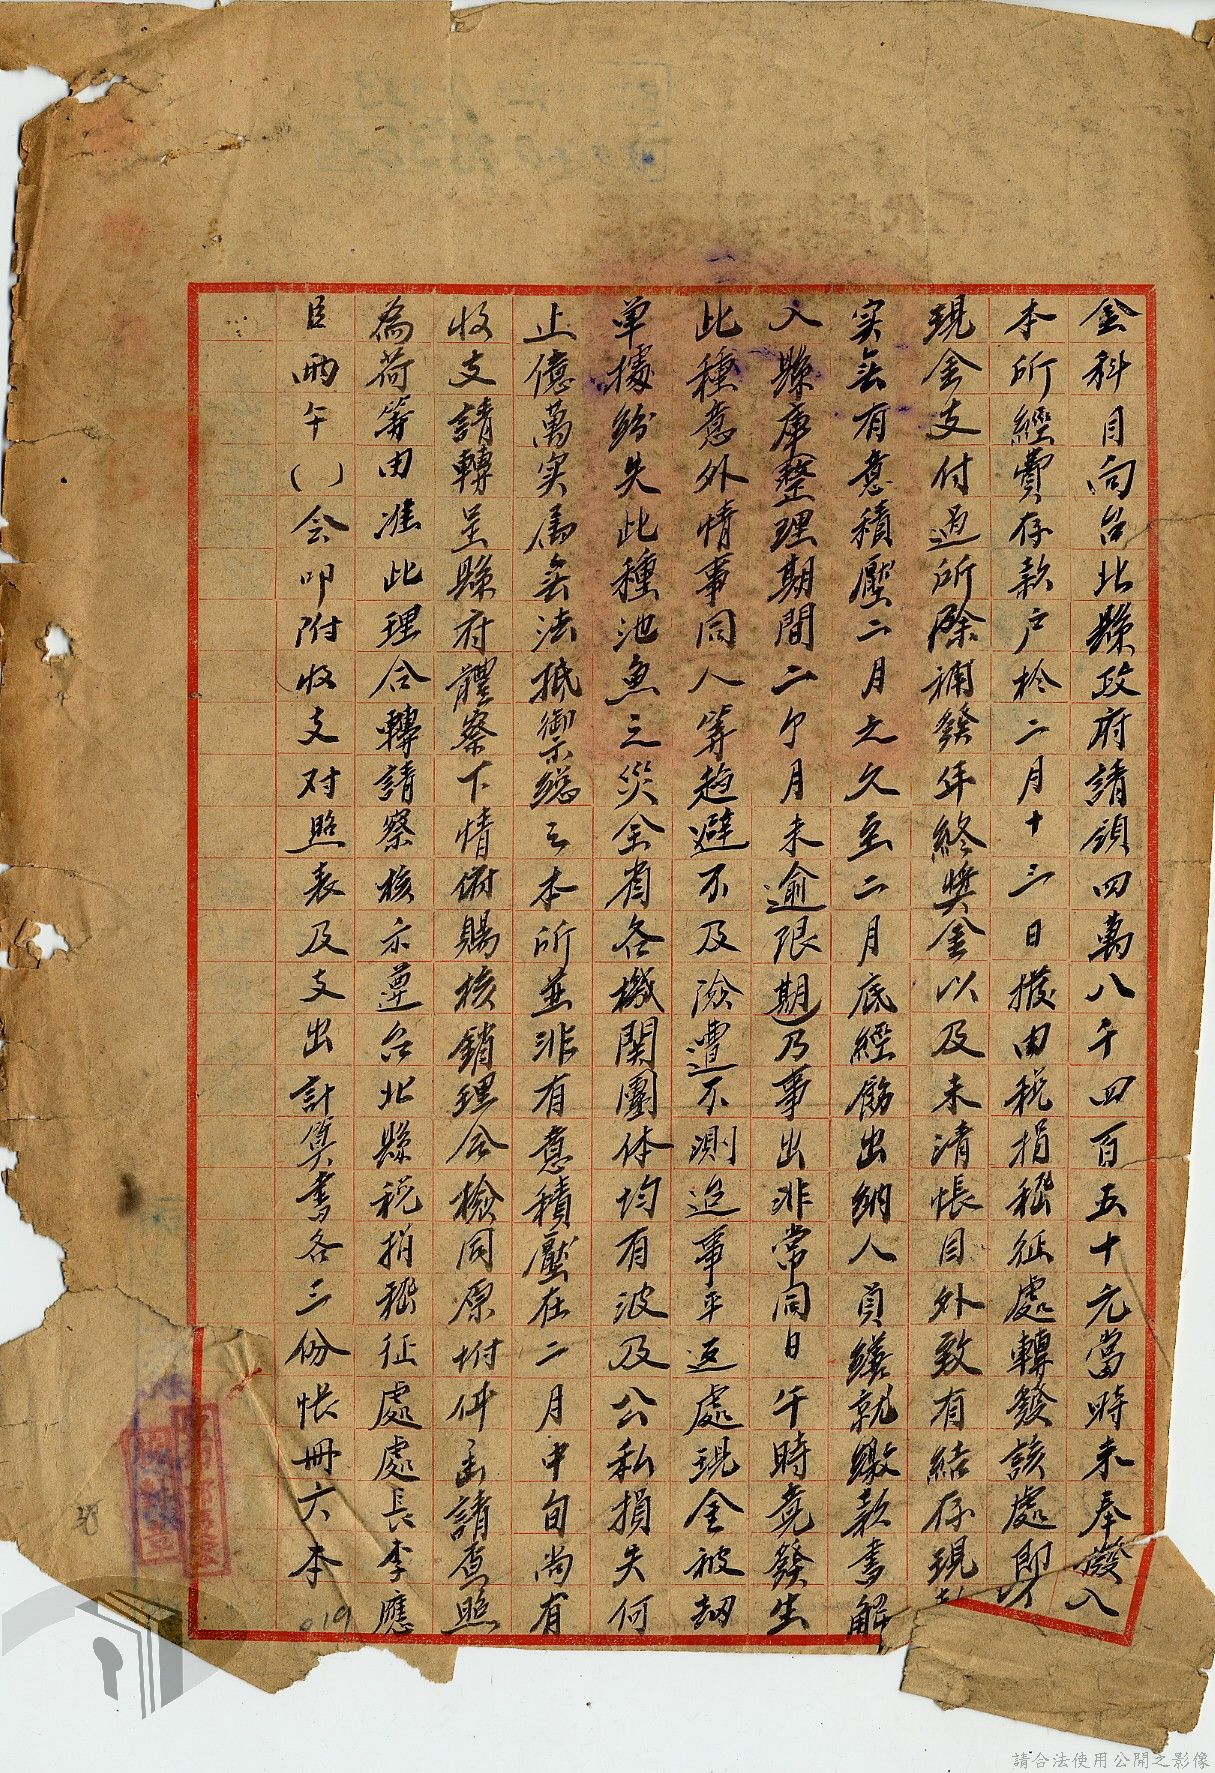 金科目向台北縣政府請領四萬八千四百五十元當時未奉發入
本所經費存款戶於二月十三日撥由稅捐稽征處轉發該處即以
現金支付過所除補發年終獎金以及未清帳目外致有結存現
实無有意積壓二月之久至二月底經飭出納人員繕就繳款書解
入縣庫(整理期間二个月未逾限期)乃事出非常同日午時竟發生
此種意外情事同人等趋避不及險遭不測迨事平返處現金被劫
单據紛失此種池魚之災全省各機関團体均有波及公私損失何
止億萬实屬無法抵禦總之本所並非有意積壓在二月中旬尚有
收支請轉呈縣府體察下情俯賜核銷理合檢同原附件函請查照
為荷等由准此理合轉請察核示遵台北縣稅捐稽征處處長李應
臣丙午()会叩附(收支对照表及支出計算書各三份帳冊六本
019
請合法使用公開之影像